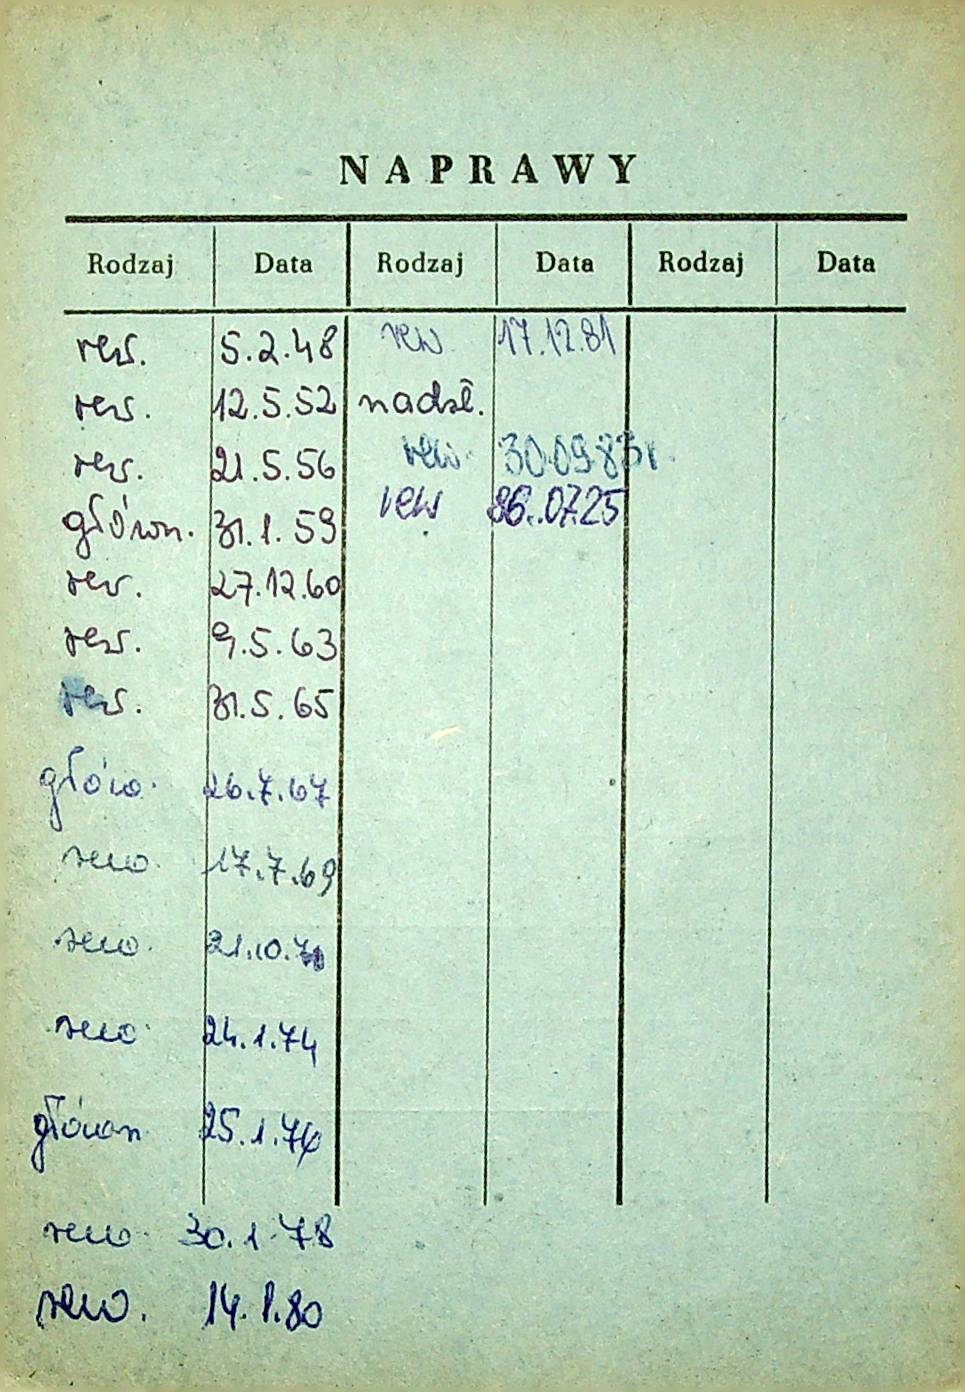 NAPRAWY
Rodzaj Data Rodzaj Data Rodzaj Data
rew. 5.2.48 rew 17.12.81
rew. 12.5.52 nadzł.
rew. 21.5.56 rew. 30.09.83r.
główn. 31.1.59 rew 86.07.25
rew. 27.12.60
rew. 9.5.63
rew. 31.5.65
główn. 26.7.67
rew. 17.7.69
rew. 21.10.71
rew. 24.1.74
główn 25.1.76
rew. 30.1.78
rew. 14.1.80